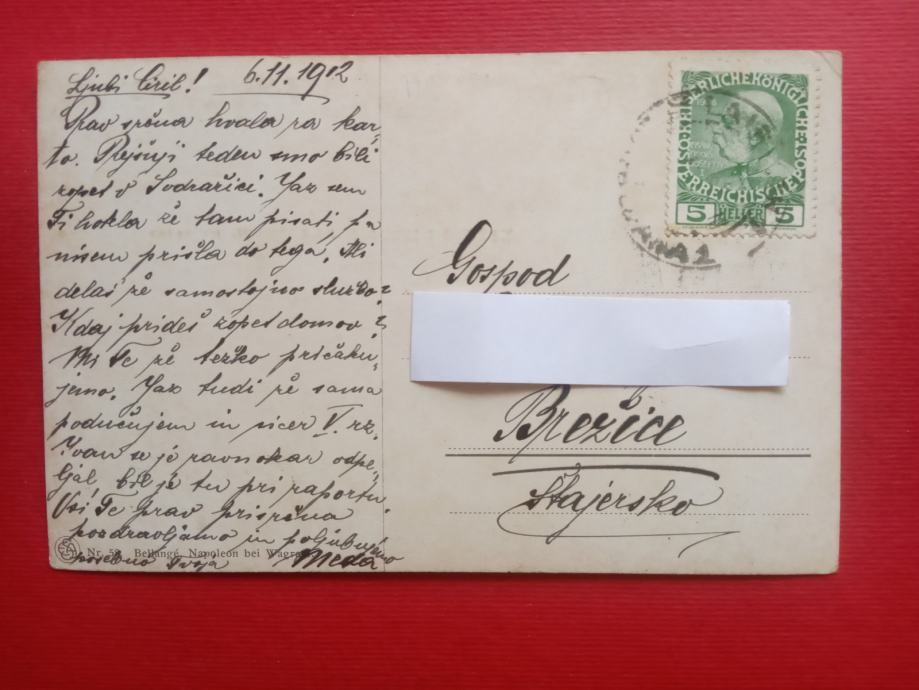 Ljubi Ciril! 6.11.1912
Prav srčna hvala za kar-
to. Prejšnji teden smo bili
zopet v Sodražici. Jaz sem
Ti hotela že tam pisati pa
nisem prišla do tega. Ali
delaš že samostojno službo?
Kdaj prideš zopet domov?
Mi Te že težko pričaku-
jemo. Jaz tudi že sama
podučujem in sicer V. rz.
Ivan se je ravnokar odpe-
ljal bil je tu pri raportu
Vsi Te prav prisrčno
pozdravljamo in poljubujemo
posebno Tvoja Meda
Nr. Bellangé, Napoleon bei Wagram
KAISERLICHE KÖNIGLICHE
ÖSTERREICHISCHE POST
5 HELLER 5
Gospod
Brežice
Štajersko